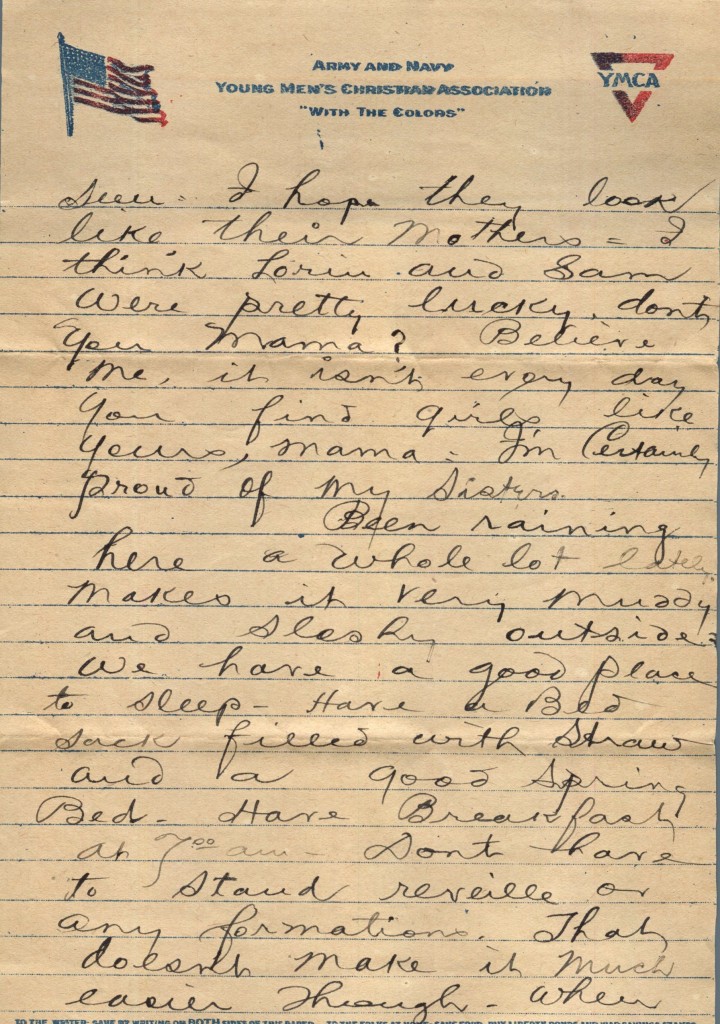 ARMY AND NAVY
YOUNG MEN'S CHRISTIAN ASSOCIATION
"WITH THE COLORS"
YMCA
seen - I hope they look
like their Mothers - I
think Lorin and Sam
were pretty lucky, dont
you Mama? Believe
me, it isn't every day
you find girls like
yours, Mama - I'm Certainly
proud of my sisters.
Been raining
here a whole lot lately.
Makes it very muddy
and sloshy outside.
We have a good place
to sleep - Have a Bed
sack filled with straw
and a good Spring
Bed - Have Breakfast
at 7 00 am - Dont have
to stand reveille or
any formations. That
doesnt make it much
easier though - When
TO THE WRITER: SAVE BY WRITING ON BOTH SIDES OF THIS PAPER. TO THE FOLKS AT HOME: SAVE FOOD, BUY LIBERTY BONDS AND